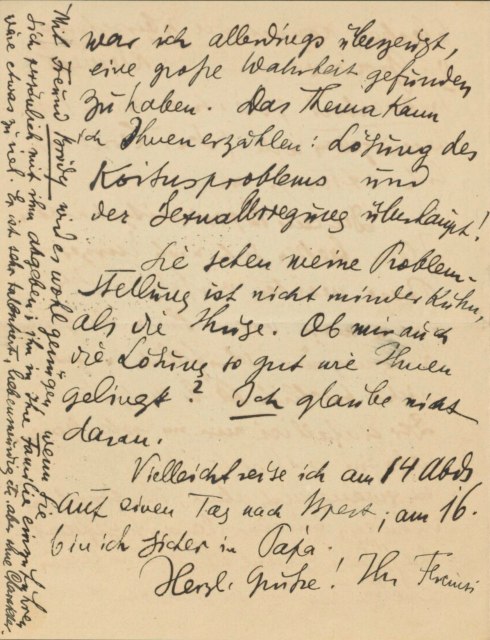 war ich allerdings überzeugt,
eine große Wahrheit gefunden
zu haben. Das Thema kann
ich Ihnen erzählen: Lösung des
Koitusproblems und
der Sexualerregung überhaupt!
Sie sehen meine Problem-
stellung ist nicht minder kühn,
als die Ihrige. Ob mir auch
die Lösung so gut wie Ihnen
gelingt? Ich glaube nicht
daran.
Vielleicht reise ich am 14 Abds
auf einen Tag nach ; am 16.
bin ich sicher in Pápa.
Herzl. Grüße! Ihr Ferenczi
Mit Freund wird es wohl genügen, wenn Sie
sich persönlich mit ihm abgeben; ihn in Ihre Familie einzuführen
wäre etwas zu viel. Er ist sehr talentiert, liebenswürdig etc. aber ohne